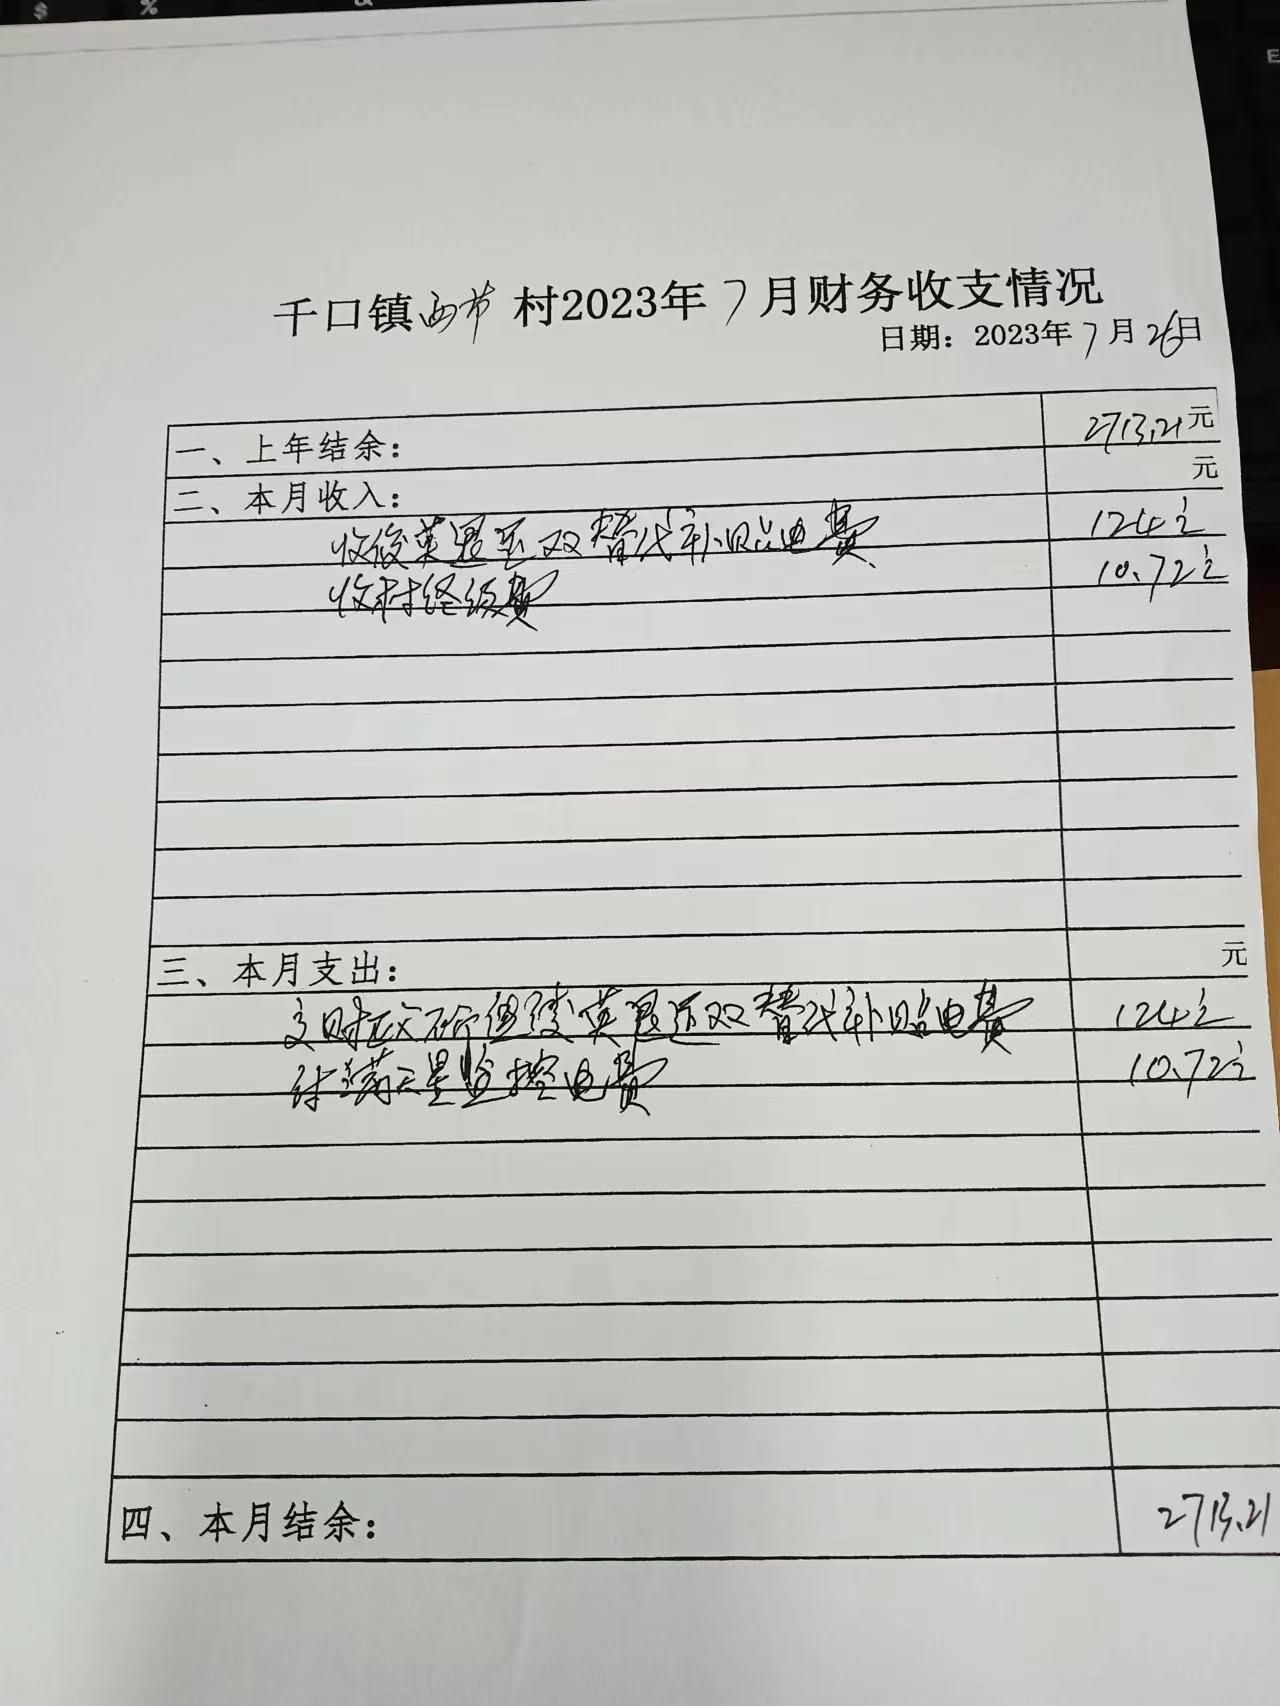 $ % &
E
千口镇西节村2023年7月财务收支情况
日期：2023年7月26日
一、上年结余： 2713.21元
二、本月收入： 元
收俊英退还双替代补贴电费 124元
收村经级费 10.72元
三、本月支出： 元
支财政所但俊英退还双替代补贴电费 124元
付满天星监控电费 10.72元
四、本月结余： 2713.21